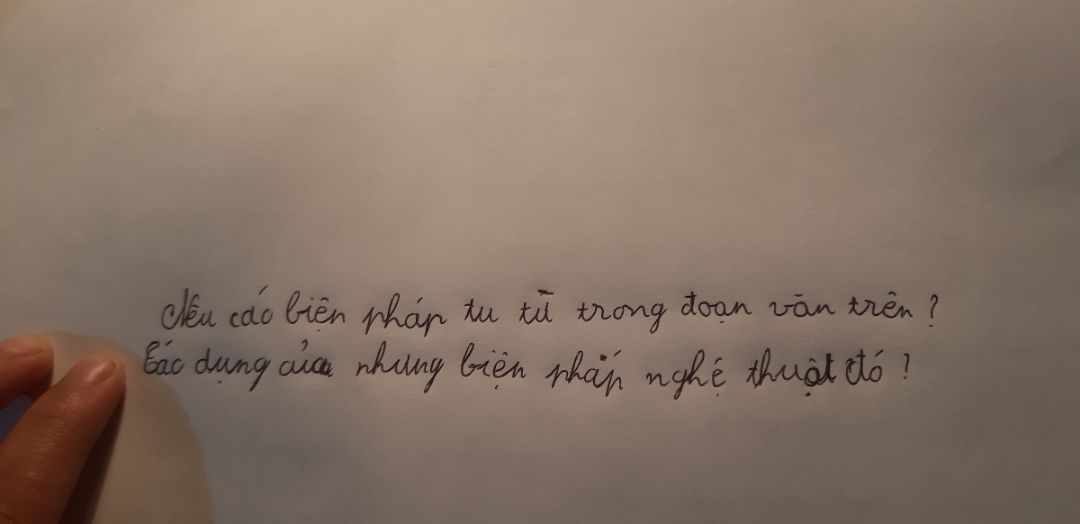 Nêu các biện pháp tu từ trong đoạn văn trên ?
Tác dụng của những biện pháp nghệ thuật đó ?